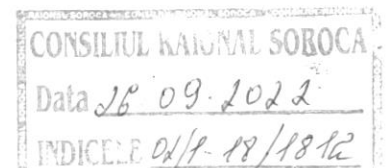 CONSILIUL RAIONAL SOROCA
Data 26 09.2022
INDICELE 02/1-18/1812